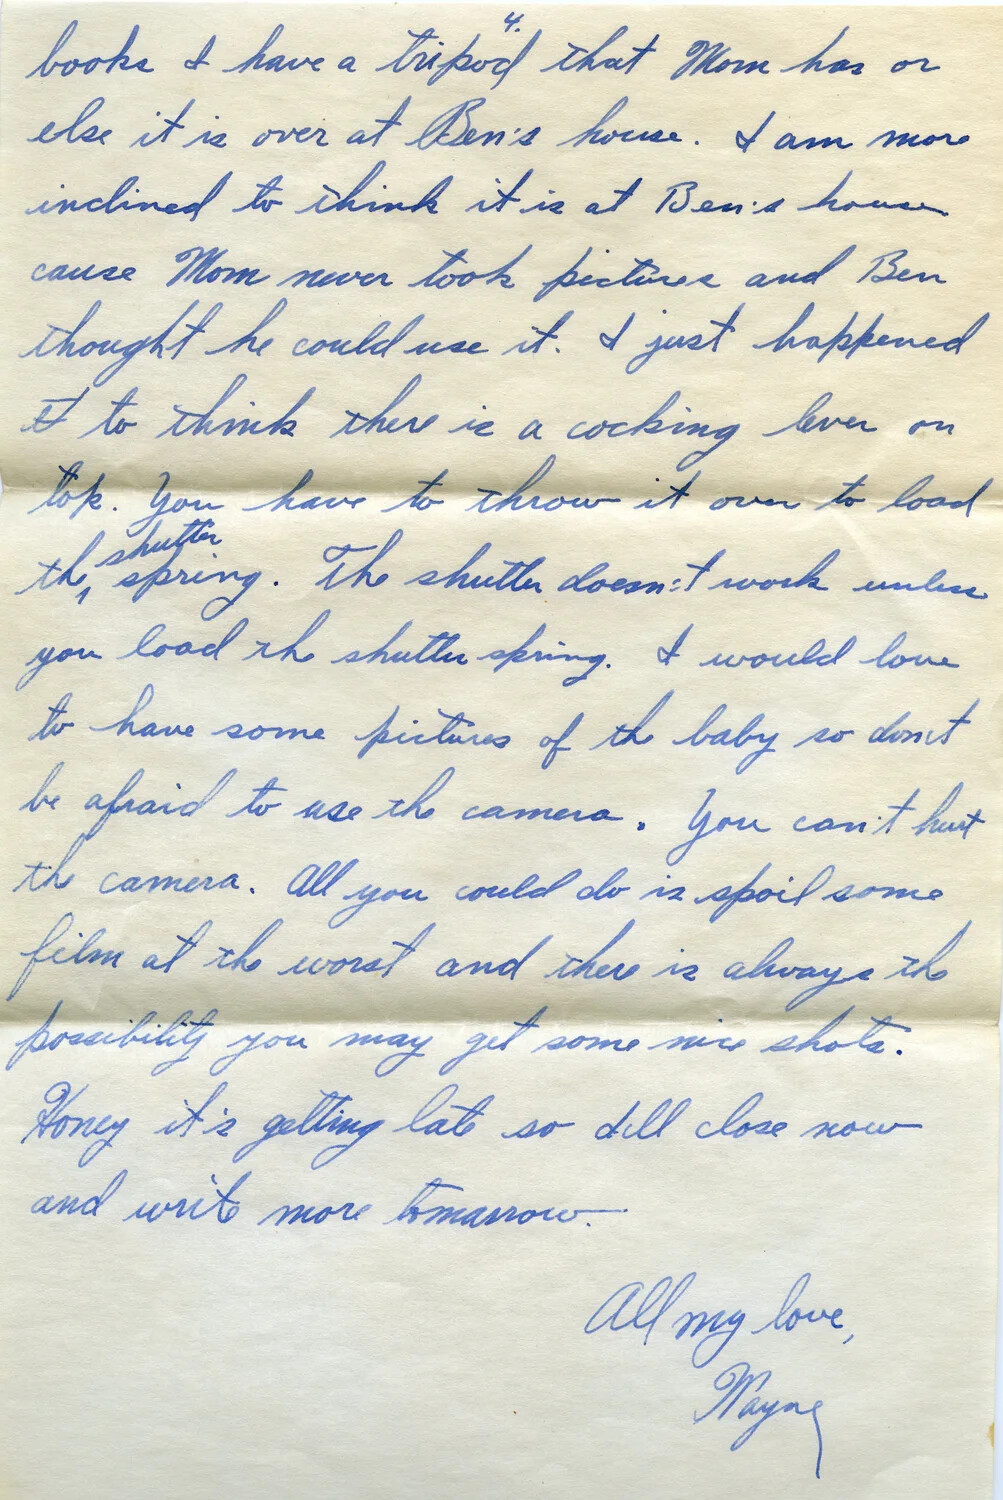 4.
books I have a tripod that Mom has or
else it is over at Ben's house. I am more
inclined to think it is at Ben's house
cause Mom never took pictures and Ben
thought he could use it. I just happened
to think there is a cocking lever on
top. You have to throw it over to load
the shutter spring. The shutter doesn't work unless
you load the shutter spring. I would love
to have some pictures of the baby so don't
be afraid to use the camera. You can't hurt
the camera. All you could do is spoil some
film at the worst and there is always the
possibility you may get some nice shots.
Honey it's getting late so I'll close now
and write more tomarrow.
All my love,
Wayne